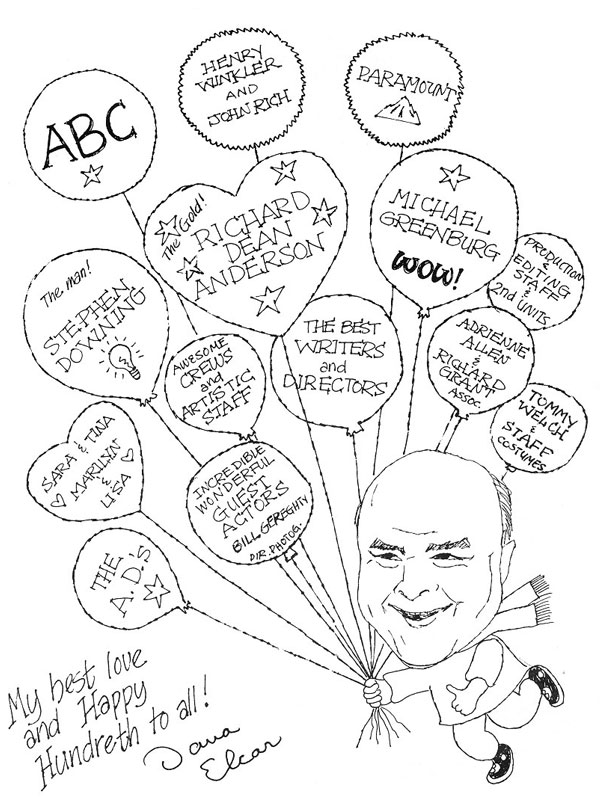 ABC
HENRY
WINKLER
AND
JOHN RICH
PARAMOUNT
The Gold!
RICHARD
DEAN
ANDERSON
MICHAEL
GREENBURG
WOW!
PRODUCTION
&
EDITING
STAFF
&
2nd UNITS
The man!
STEPHEN
DOWNING
AWESOME
CREWS
and
ARTISTIC
STAFF
THE BEST
WRITERS
and
DIRECTORS
ADRIENNE
ALLEN
&
RICHARD
GRANT
ASSOC.
TOMMY
WELCH
&
STAFF
COSTUMES
SARA & TINA
MARILYN
&
LISA
INCREDIBLE
WONDERFUL
GUEST
ACTORS
BILL GEREGHTY
DIR. PHOTOG.
THE
A.D.S
My best love
and Happy
Hundreth to all!
Dana
Elcar